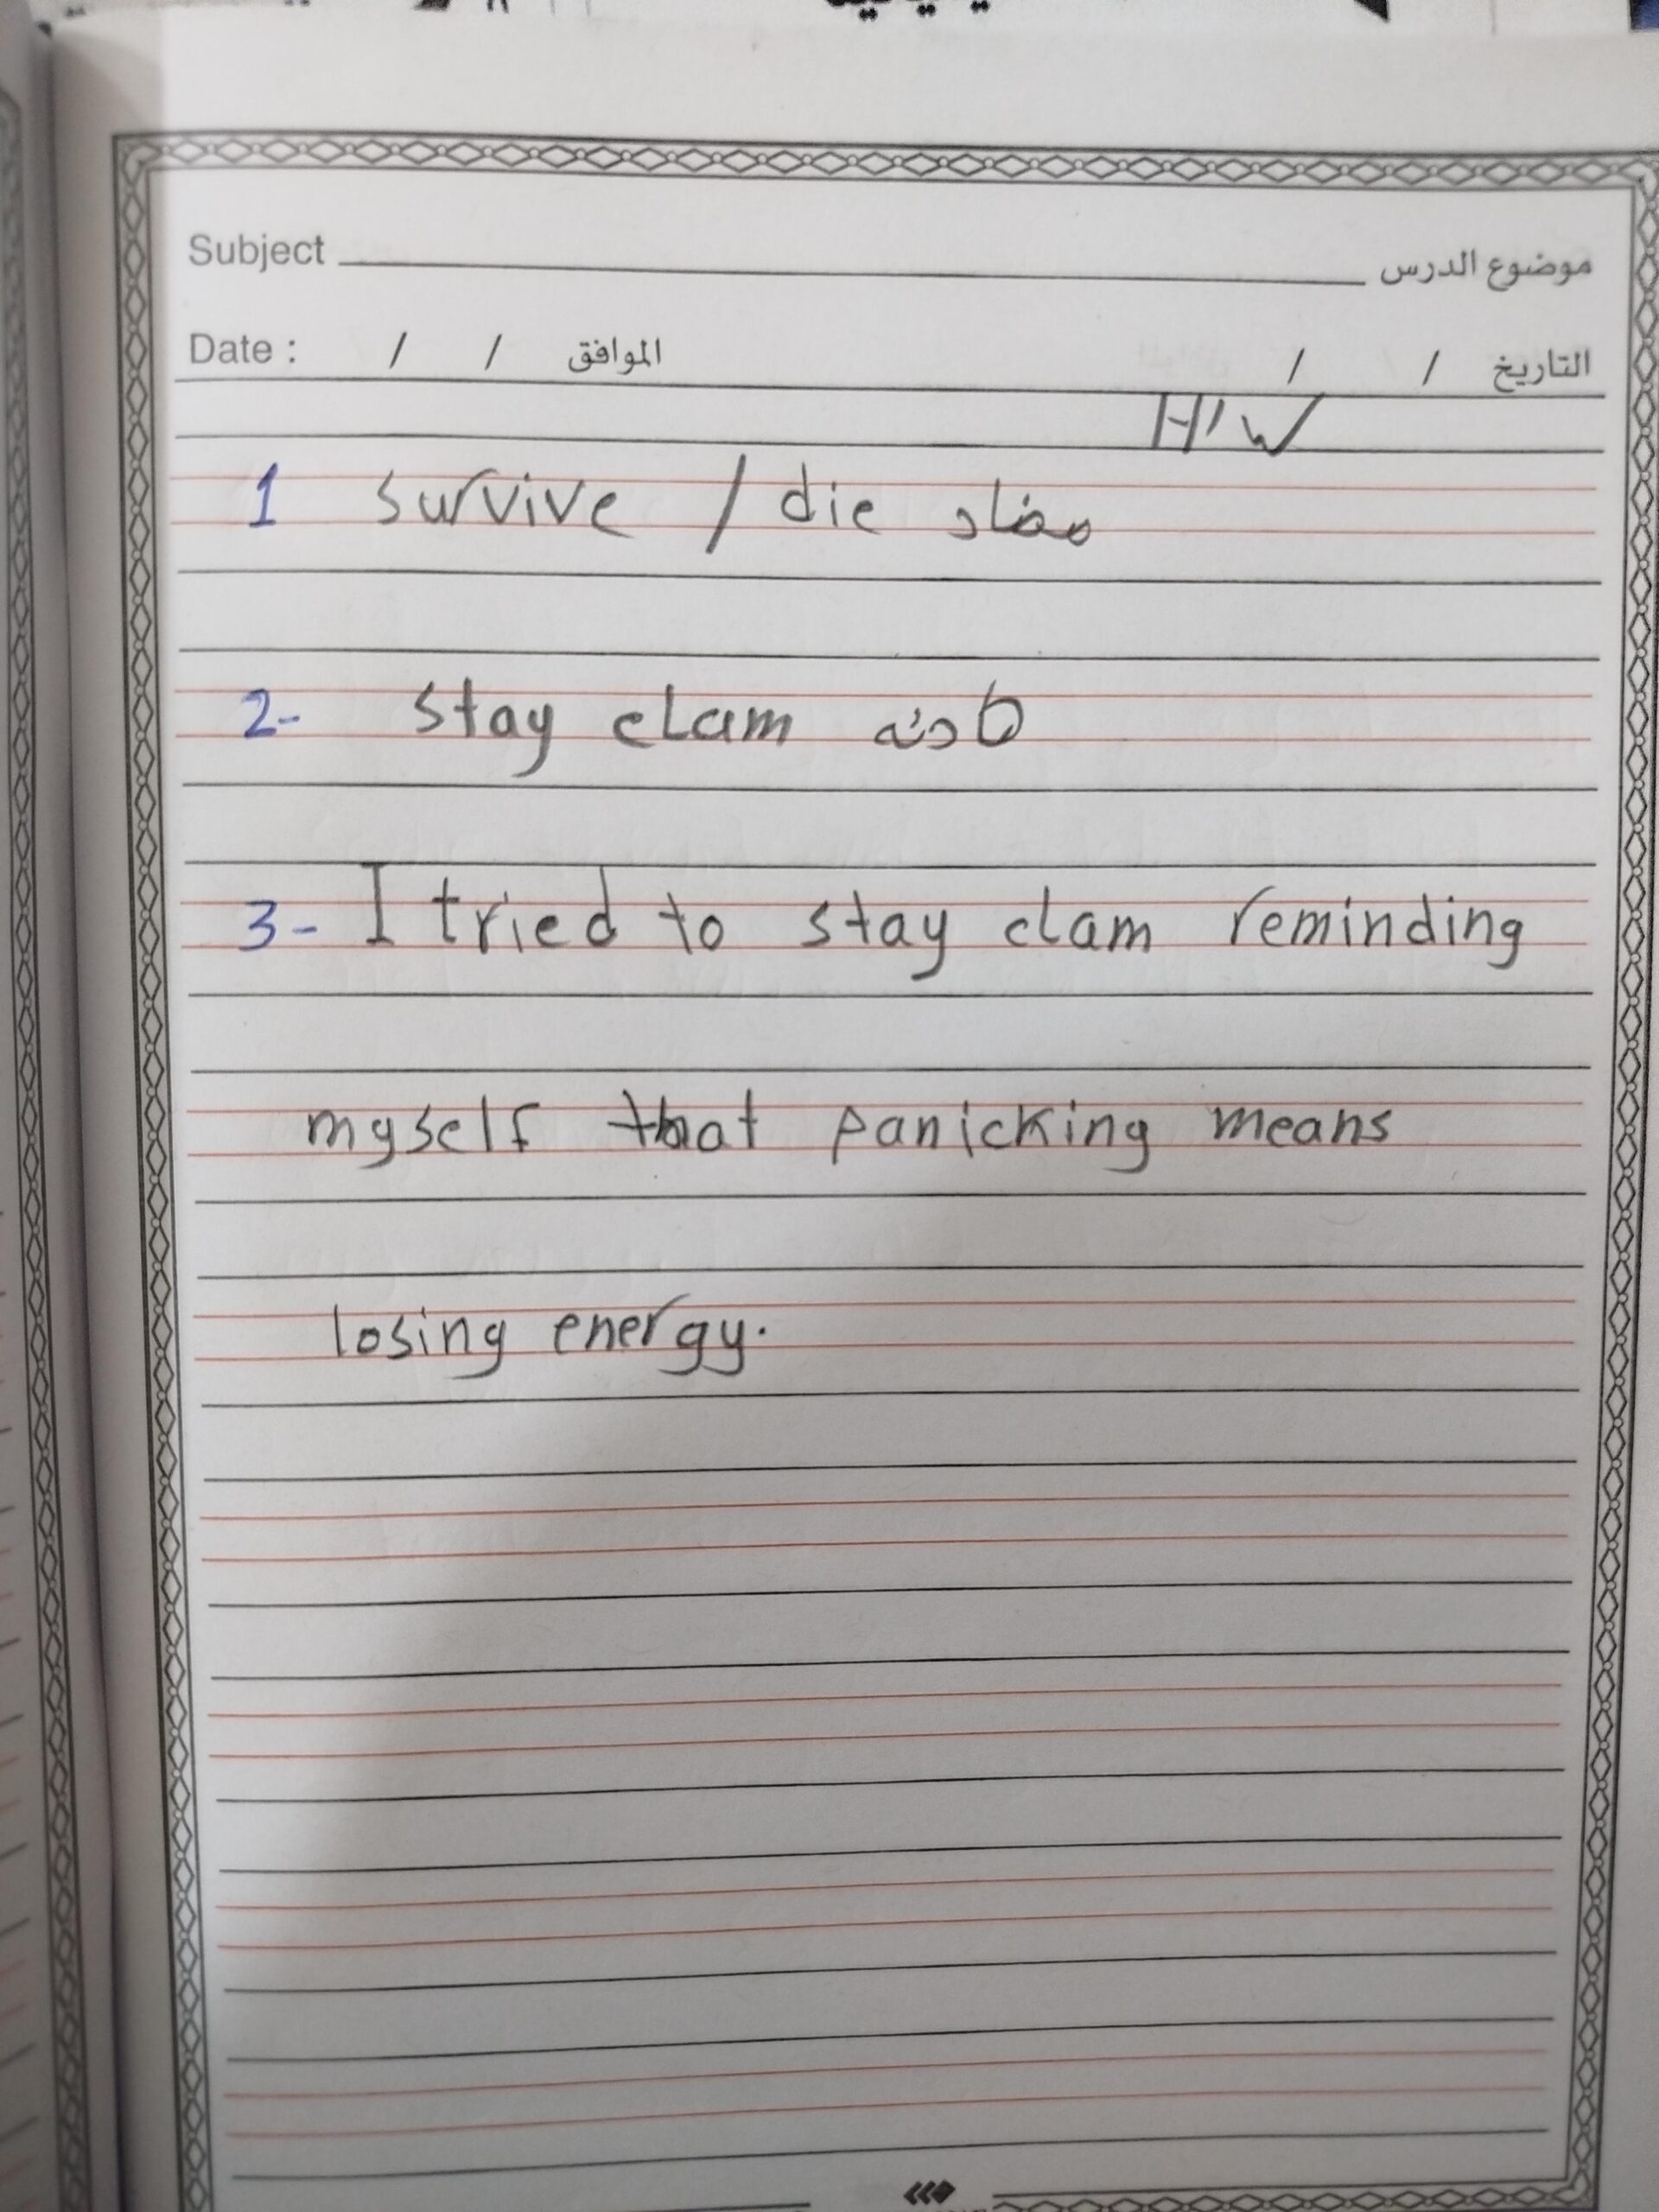 Subject موضوع الدرس
Date : / / الموافق / / التاريخ
H/W
1 survive / die مضاد
2- stay clam
3- I tried to stay clam reminding
myself that panicking means
losing energy.